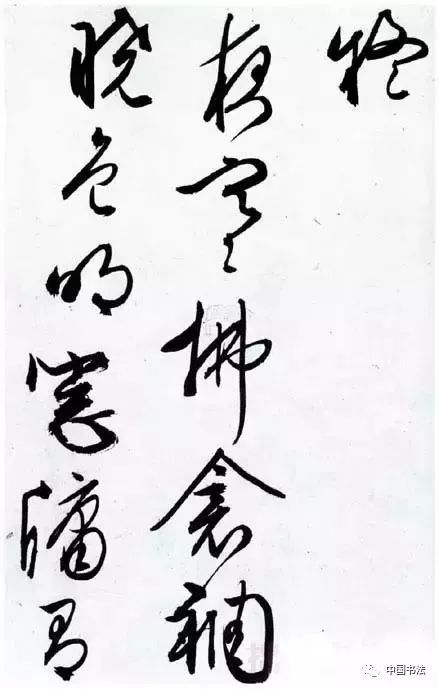 夜寒拂衾裯
曉色明窻牖
中国书法